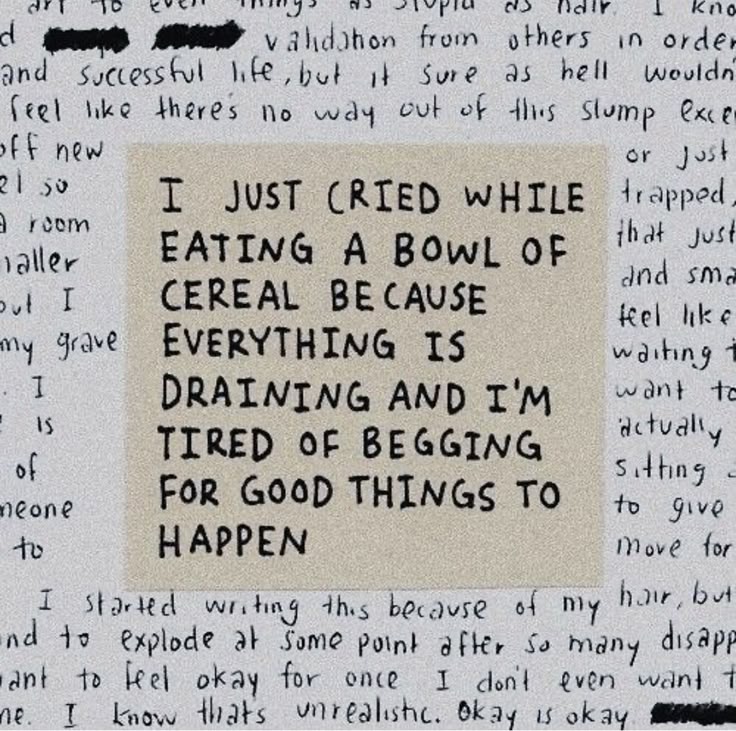 art to even things as stupid as hair. I kno
d validation from others in order
and successful life, but it sure as hell wouldn'
feel like there's no way out of this slump exce
off new or just
el so trapped,
a room that just
maller and sma
but I feel like
my grave waiting t
. I want to
e is actually
of sitting a
meone to give
to move for
I JUST CRIED WHILE
EATING A BOWL OF
CEREAL BECAUSE
EVERYTHING IS
DRAINING AND I'M
TIRED OF BEGGING
FOR GOOD THINGS TO
HAPPEN
I started writing this because of my hair, but
nd to explode at some point after so many disapp
ant to feel okay for once I don't even want t
me. I know that's unrealistic. Okay is okay